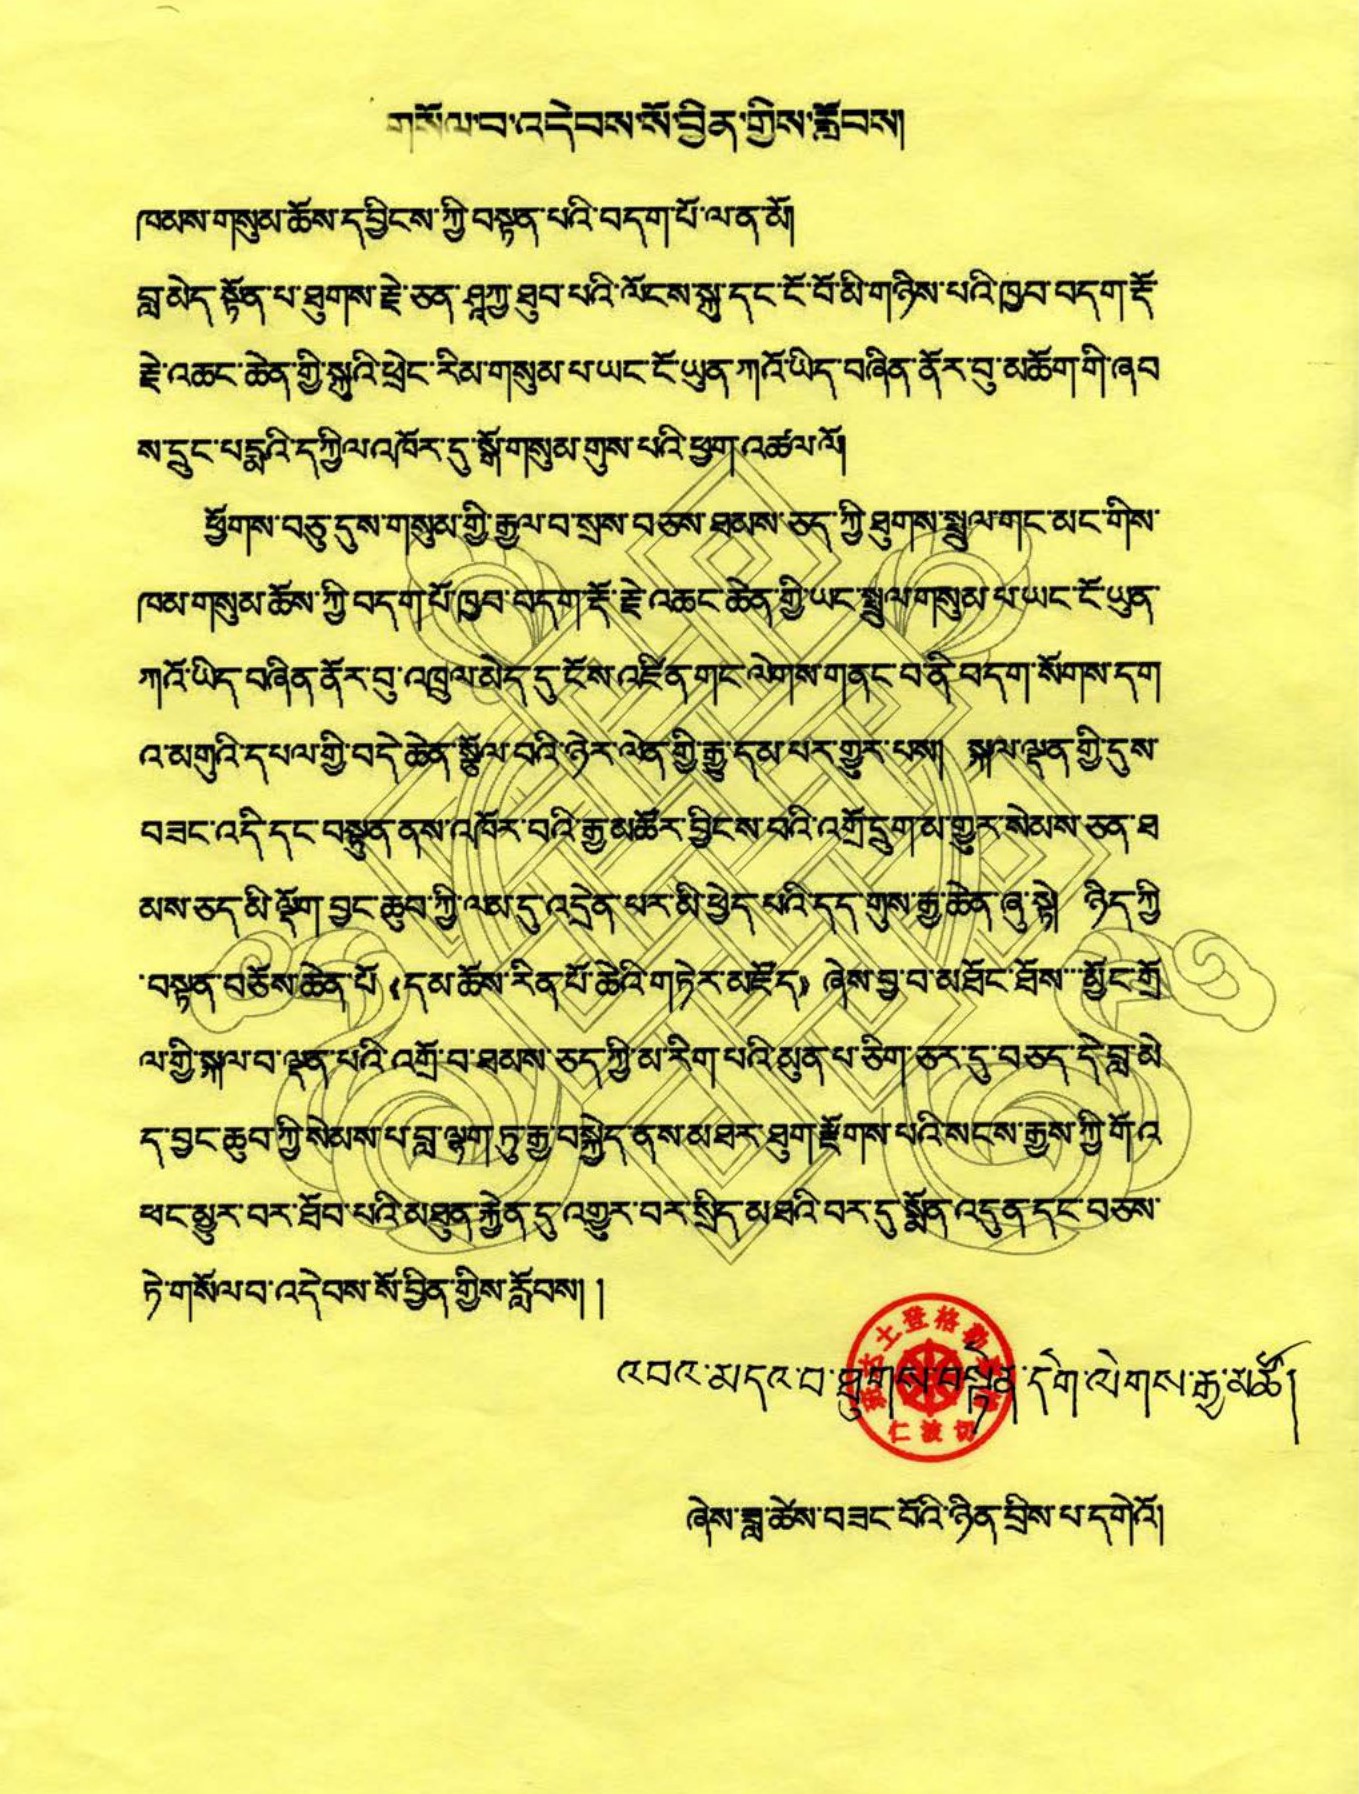 གསོལ་བ་འདེབས་སོ་བྱིན་གྱིས་རློབས།
ཁམས་གསུམ་ཆོས་དབྱིངས་ཀྱི་བསྟན་པའི་བདག་པོ་ལ་ན་མོ།
བླ་མེད་སྟོན་པ་ཐུགས་རྗེ་ཅན་ཤཱཀྱ་ཐུབ་པའི་ལོངས་སྐུ་དང་ངོ་བོ་མི་གཉིས་པའི་ཁྱབ་བདག་རྡོ་
རྗེ་འཆང་ཆེན་གྱི་སྐུའི་ཕྲེང་རིམ་གསུམ་པ་ཡང་ངོ་ཡུན་ཀའོ་ཡིད་བཞིན་ནོར་བུ་མཆོག་གི་ཞབ
ས་དྲུང་པདྨའི་དཀྱིལ་འཁོར་དུ་སྒོ་གསུམ་གུས་པའི་ཕྱག་འཚལ་ལོ།
ཕྱོགས་བཅུ་དུས་གསུམ་གྱི་རྒྱལ་བ་སྲས་བཅས་ཐམས་ཅད་ཀྱི་ཐུགས་སྤྲུལ་གང་མང་གིས་
ཁམ་གསུམ་ཆོས་ཀྱི་བདག་པོ་ཁྱབ་བདག་རྡོ་རྗེ་འཆང་ཆེན་གྱི་ཡང་སྤྲུལ་གསུམ་པ་ཡང་ངོ་ཡུན་
ཀའོ་ཡིད་བཞིན་ནོར་བུ་འཁྲུལ་མེད་དུ་ངོས་འཛིན་གང་ལེགས་གནང་བ་ནི་བདག་སོགས་དག
འ་མགུའི་དཔལ་གྱི་བདེ་ཆེན་སྩོལ་བའི་ཉེར་ལེན་གྱི་རྒྱུ་དམ་པར་གྱུར་པས། སྐལ་ལྡན་གྱི་དུས་
བཟང་འདི་དང་བསྟུན་ནས་འཁོར་བའི་རྒྱ་མཚོར་བྱིངས་བའི་འགྲོ་དྲུག་མ་གྱུར་སེམས་ཅན་ཐ
མས་ཅད་མི་ལྡོག་བྱང་ཆུབ་ཀྱི་ལམ་དུ་འདྲེན་པར་མི་ཕྱེད་པའི་དད་གུས་རྒྱ་ཆེན་ཞུ་སྟེ། ཉིད་ཀྱི
་བསྟན་བཅོས་ཆེན་པོ《དམ་ཆོས་རིན་པོ་ཆེའི་གཏེར་མཛོད》ཞེས་བྱ་བ་མཐོང་ཐོས་་མྱོང་གྲོ
ལ་གྱི་སྐལ་བ་ལྡན་པའི་འགྲོ་བ་ཐམས་ཅད་ཀྱི་མ་རིག་པའི་མུན་པ་ཅིག་ཅར་དུ་བཅད་དེ་བླ་མེ
ད་བྱང་ཆུབ་ཀྱི་སེམས་པ་བླ་ལྷག་ཏུ་རྒྱ་བསྐྱེད་ནས་མཐར་ཐུག་རྫོགས་པའི་སངས་རྒྱས་ཀྱི་གོ་འ
ཕང་མྱུར་བར་ཐོབ་པའི་མཐུན་རྐྱེན་དུ་འགྱུར་བར་སྲིད་མཐའི་བར་དུ་སྨོན་འདུན་དང་བཅས་
ཏེ་གསོལ་བ་འདེབས་སོ་བྱིན་གྱིས་རློབས། །
འབའ་མདའ་བ་ཐུགས་བསྟན་དགེ་ལེགས་རྒྱ་མཚོ།
土登格勒
仁波切
ཞེས་ཟླ་ཚེས་བཟང་བོའི་ཉིན་བྲིས་པ་དགེའོ།